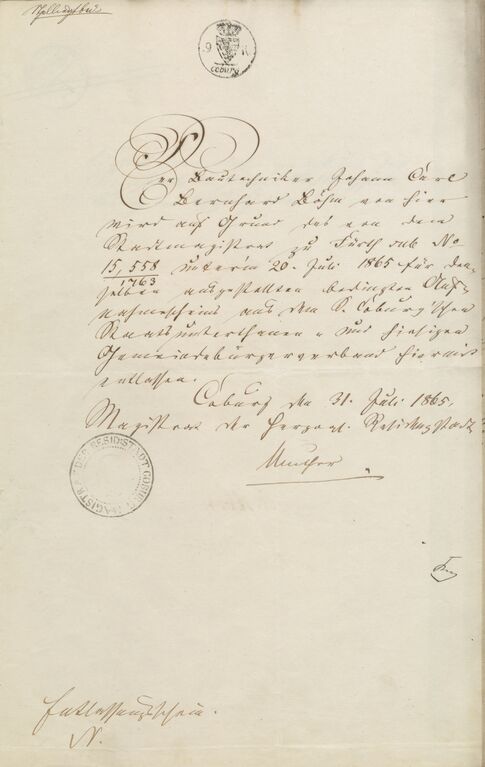 9 K
COBURG
Der Bautechniker Johann Carl
Bernhard Böhm von hier
wird auf Grund des von dem
Stadtmagistrat zu Fürth sub No
15,558
1763
unterm 20. Juli 1865 für den-
selben ausgestellten bedingten Auf-
nahmescheins aus dem S. Coburg'schen
Staatsunterthanen- und hiesigen
Gemeindebürgerverband hiermit
entlassen.
Coburg den 31. Juli 1865.
Magistrat der herzogl. Residenzstadt
Muther
MAGISTRAT DER RESID: STADT COBURG
Entlassungsschein.